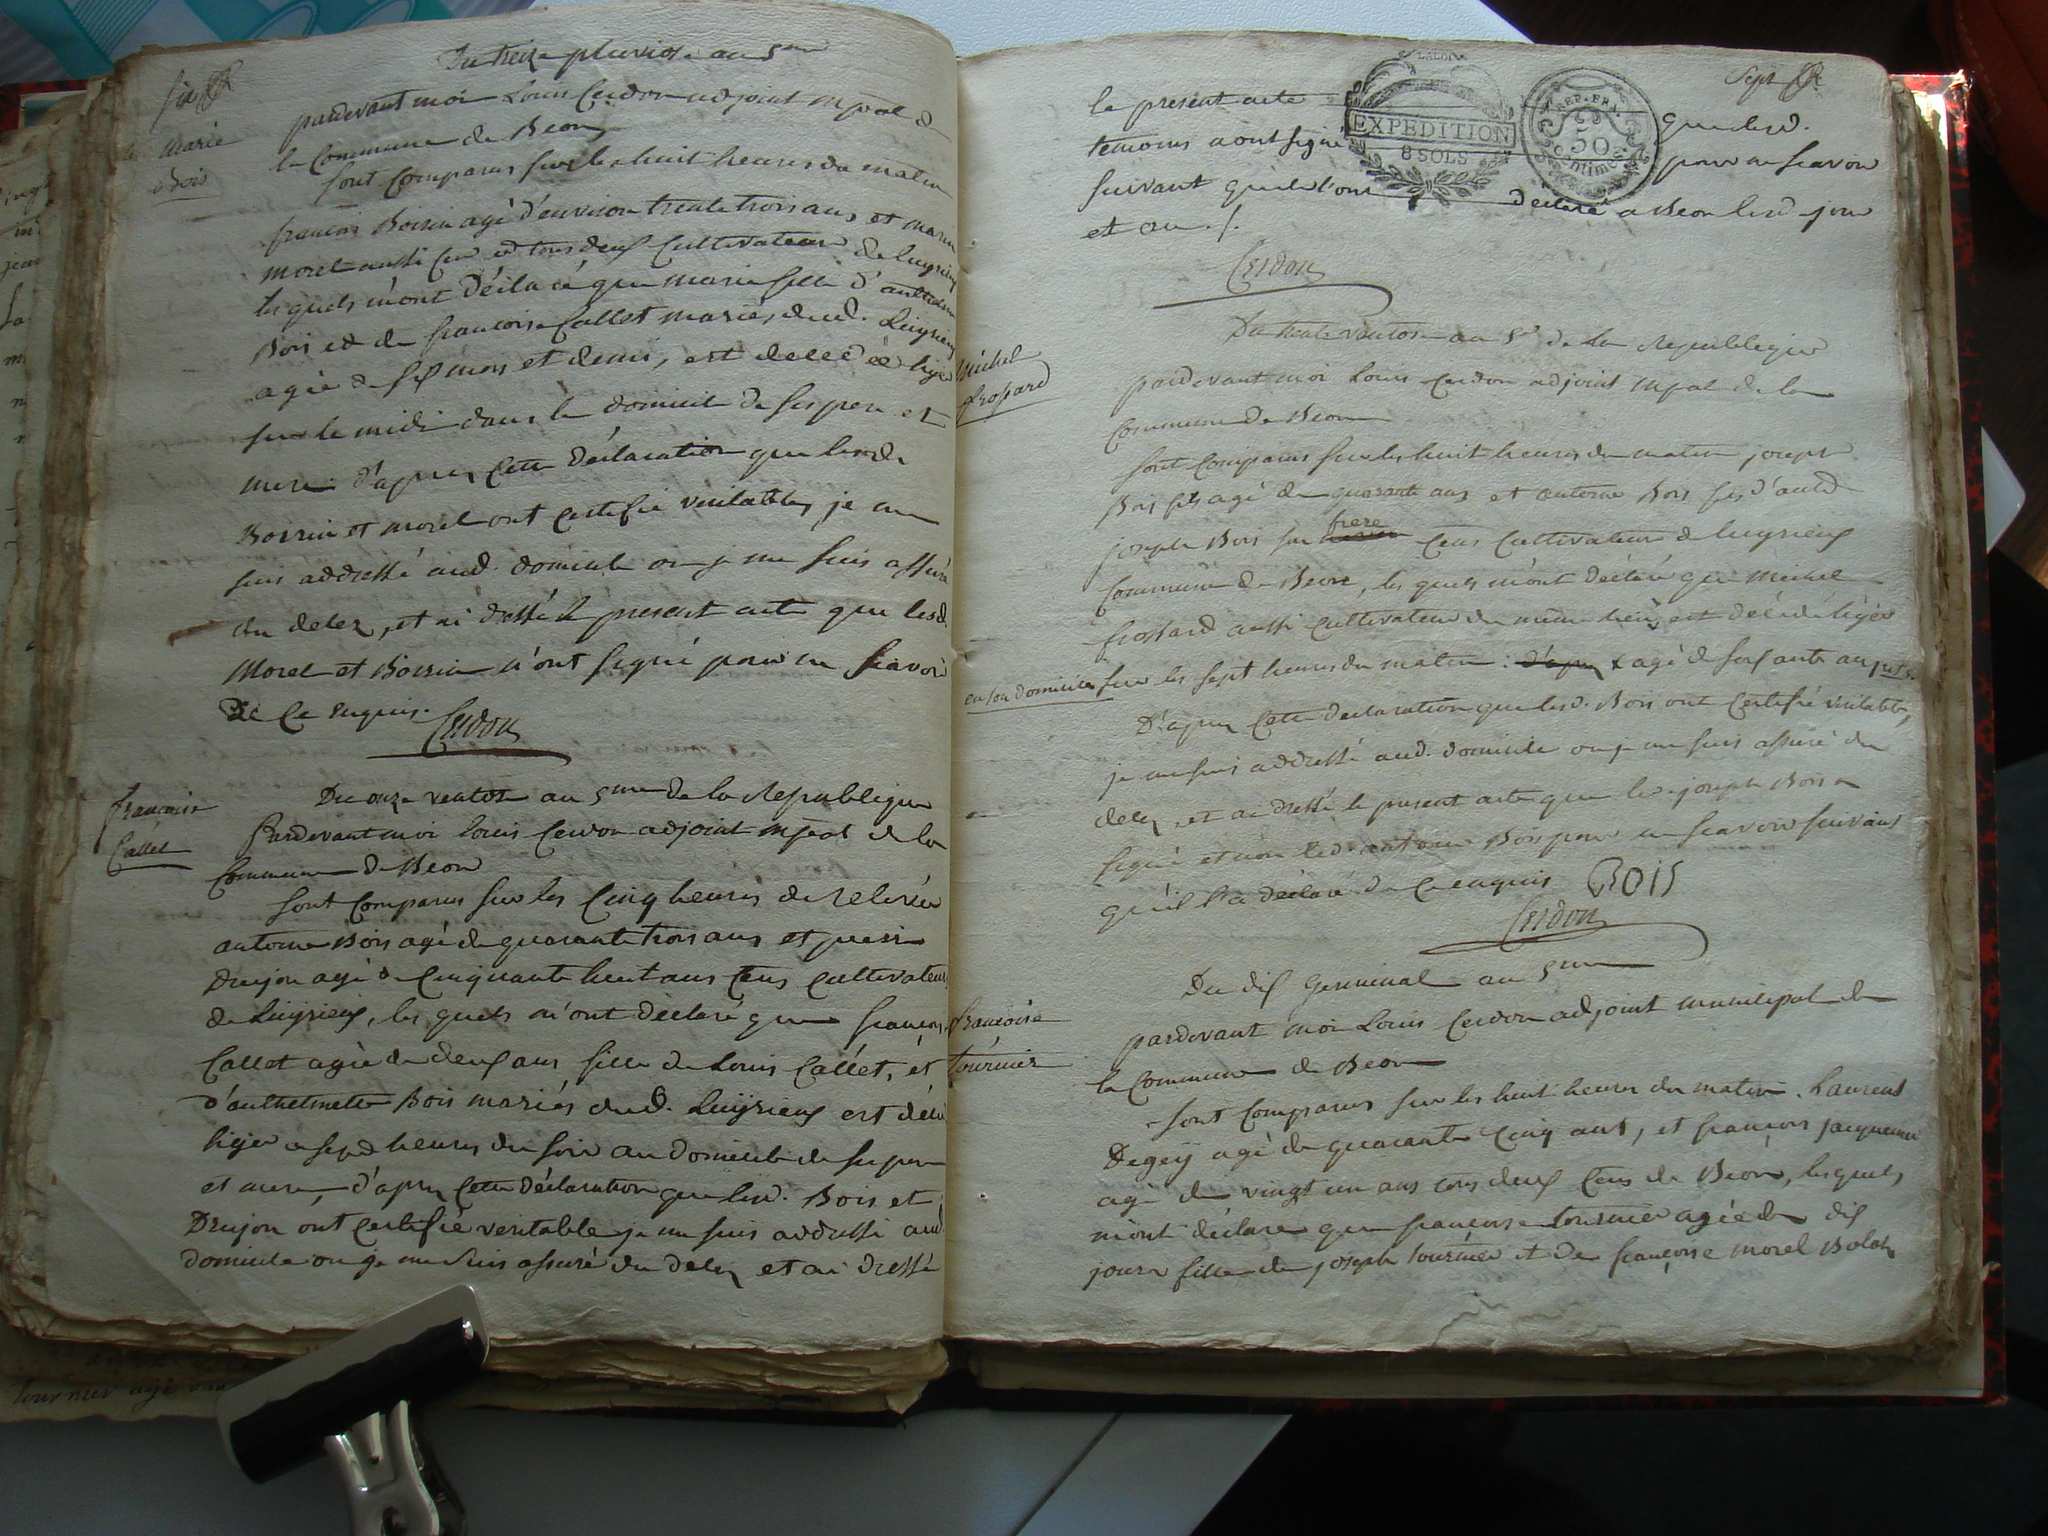 six
Du treize pluviose an 5me
Marie
Bois
pardevant moi Louis Cerdon adjoint mpal de
la Commune de Beon
sont Comparus sur les huit heures du matin
francois Boisin agé d'environ trente trois ans et marin
morel aussi tous deux Cultivateurs de luyrieux
lesquels m'ont déclaré que marie fille d'anthelme
Bois et de francoise Callet mariés dud. Luyrieux
agée de six mois et demi, est decedée hyer
sur le midi dans le domicile de ses pere et
mere d'apres cette déclaration que lesd.
Boisin et morel ont certifié veritable, je me
suis addressé aud. domicile ou je me suis assuré
du deces, et ai dressé le present acte que lesd.
Morel et Boisin n'ont signé pour ne scavoir
de ce enquis.
Cerdon
francoise
Callet
Du onze ventose an 5me de la Republique
Pardevant moi louis Cerdon adjoint mpal de la
Commune de Beon
sont Comparus sur les Cinq heures de relevée
antoine Bois agé de quarante trois ans et
Drujon agé de Cinquante huit ans tous cultivateurs
de Luyrieux, les quels m'ont déclaré que francoise
Callet agée de deux ans fille de Louis Callet, et
d'anthelmette Bois mariés dud. Luyrieux est décédé
hyer a sept heures du soir au domicile de ses pere
et mere, d'apres cette déclaration que lesd. Bois et
Drujon ont certifié veritable je me suis addressé aud.
domicile ou je me suis assuré du deces et ai dressé
Sept
le present acte que lesd.
temoins n'ont signé pour ne scavoir
suivant qu'ils l'ont declaré a Beon lesd. jour
et an ./.
LA LOI
EXPEDITION
8 SOLS
REP. FRA.
50
centimes
Cerdon
Du trente ventose an 5e de la Republique
Michel
frossard
pardevant moi Louis Cerdon adjoint mpal de la
Commune de Beon
sont Comparus sur les huit heures du matin joseph
Bois fils agé de quarante ans et antoine Bois fils d'aud.
joseph Bois son frere tous Cultivateurs de luyrieux
Commune de Beon, les quels m'ont déclaré que michel
frossard aussi cultivateur du meme lieu, est décédé hyer
en son domicile sur les sept heures du matin : d'apres x agé de soixante ans
D'apres cette declaration que lesd. Bois ont certifié veritable,
je me suis addressé aud. domicile ou je me suis assuré du
deces, et ai dressé le present acte que led. joseph Bois a
signé et non led. antoine Bois pour ne scavoir suivant
qu'il l'a déclaré de ce enquis BOIS
Cerdon
Du dix germinal an 5me
francoise
tournier
pardevant moi Louis Cerdon adjoint municipal de
la Commune de Beon
sont Comparus sur les huit heures du matin. Laurent
Degey agé de quarante Cinq ans, et françois jacquemier
agé de vingt un ans tous deux de Beon, lesquels
m'ont déclare que francoise tournier agée de dix
jours fille de joseph tournier et de françoise morel
tournier agé